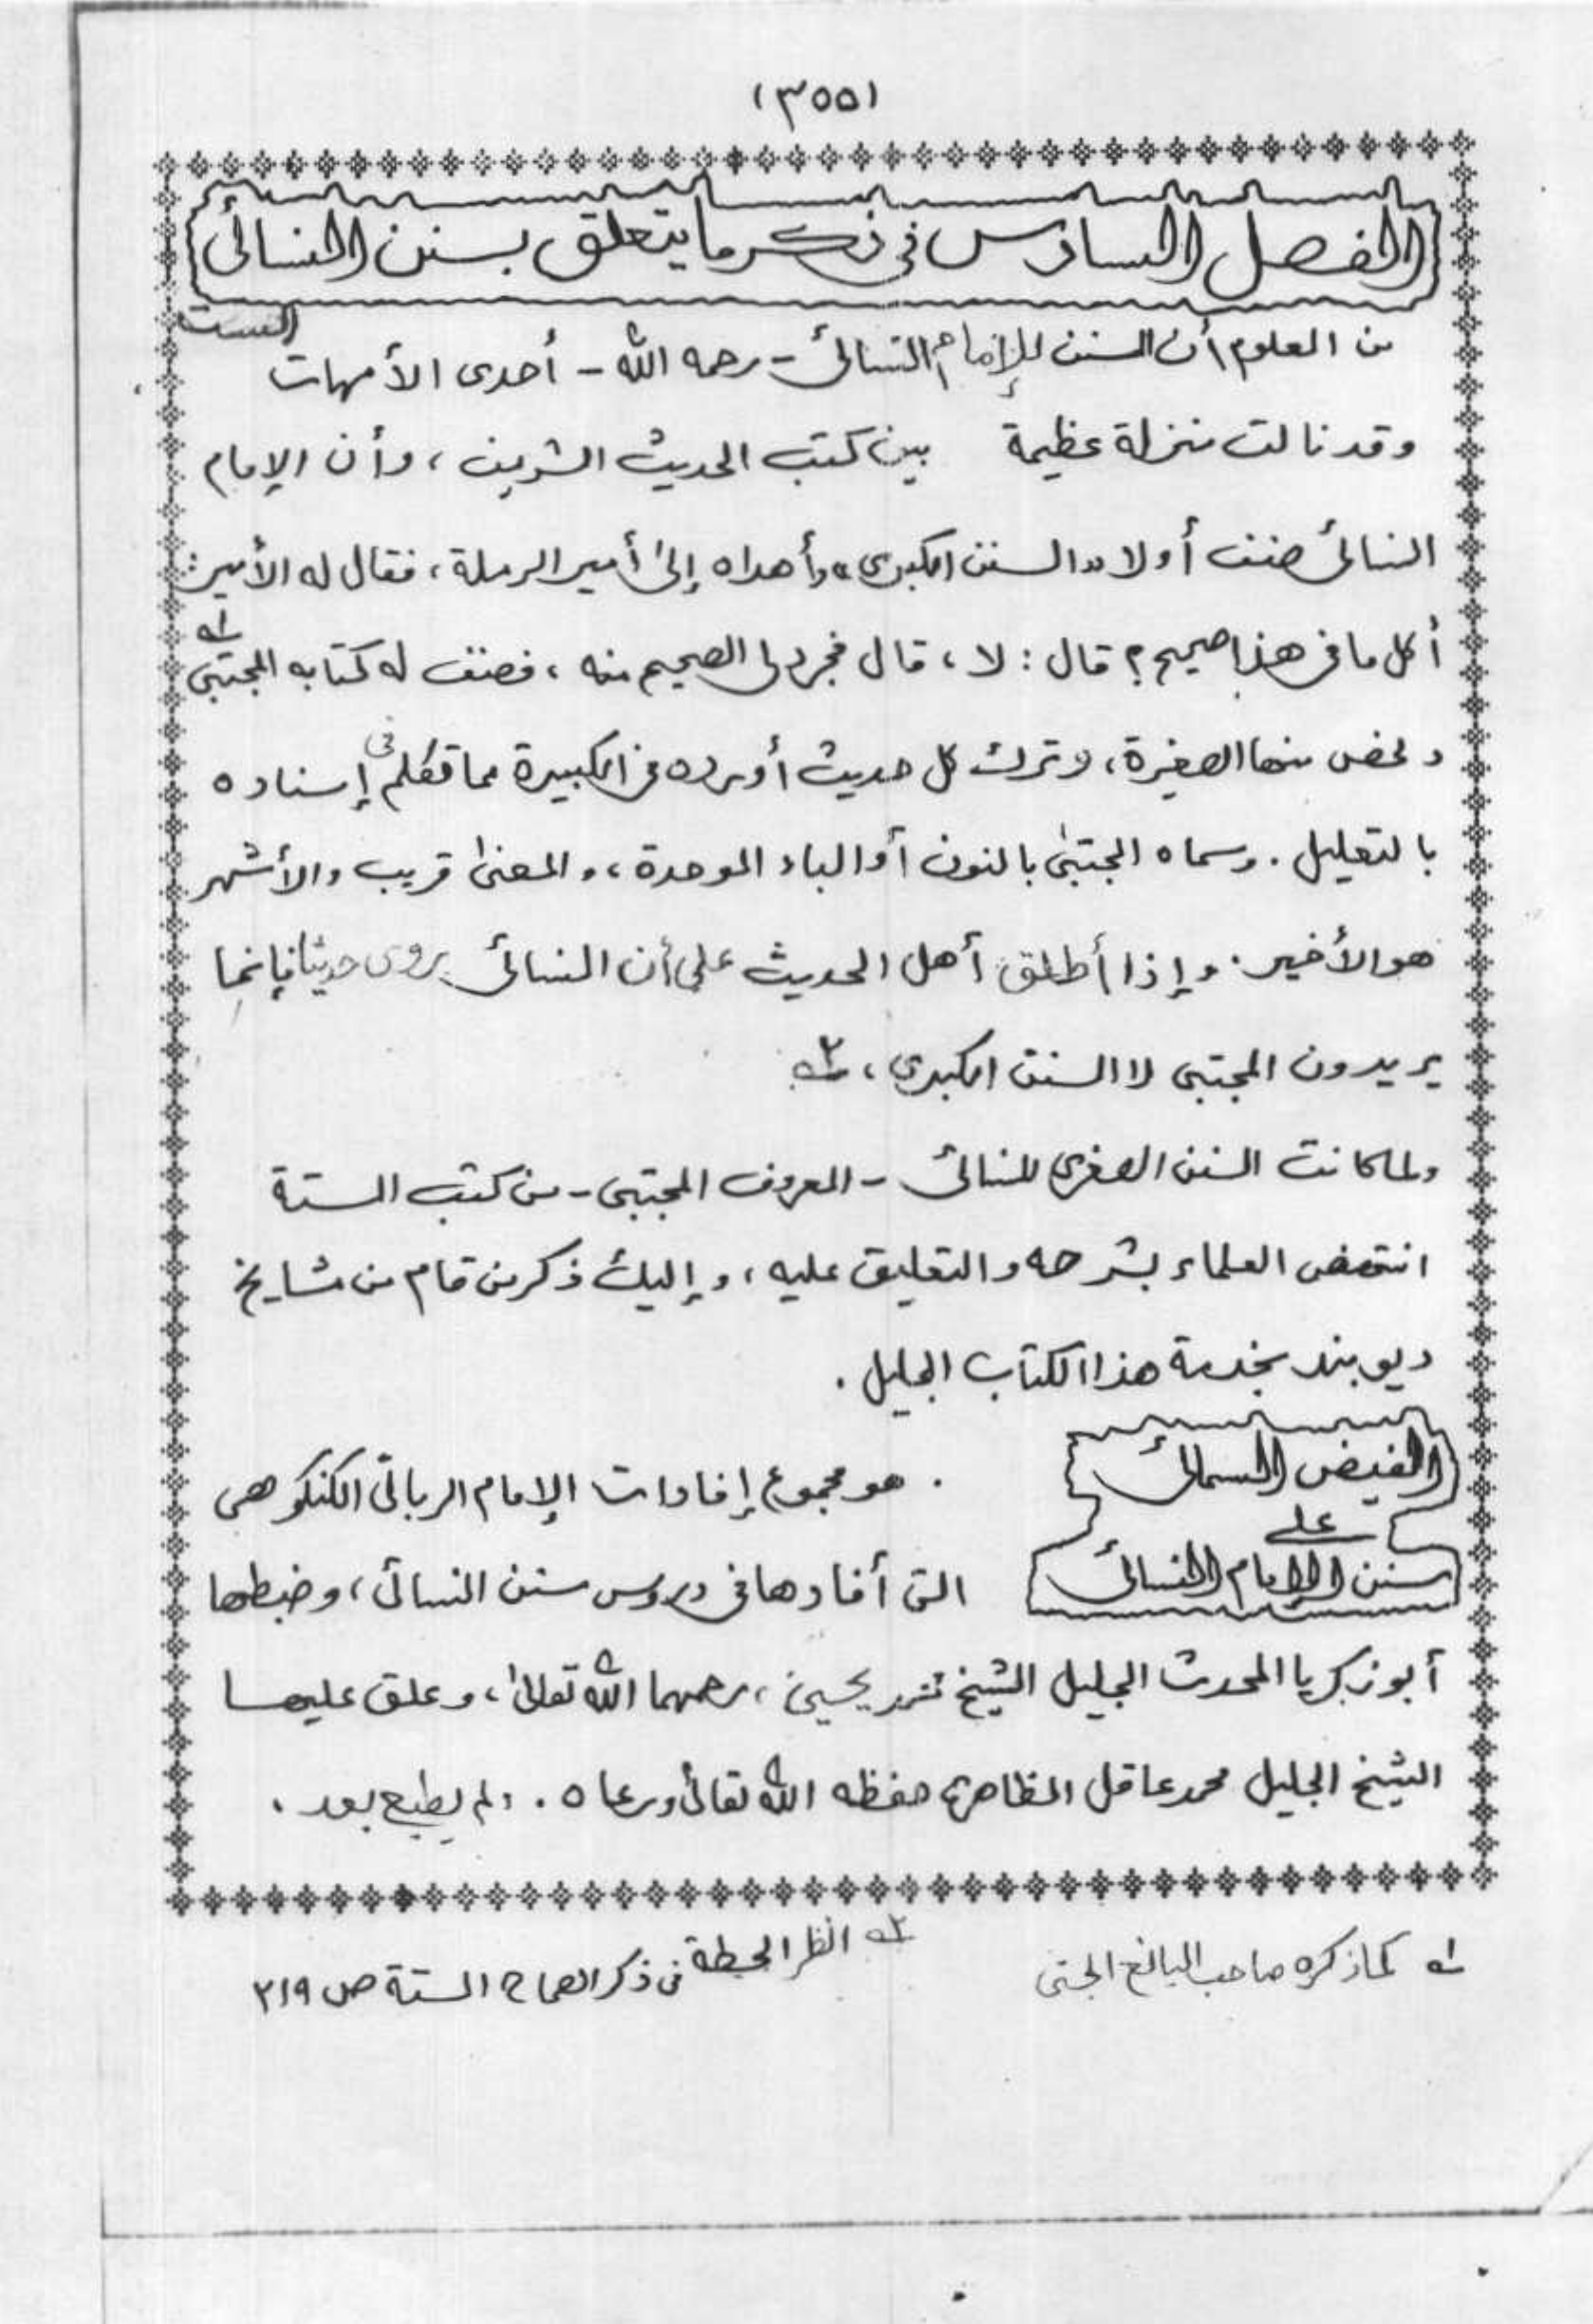 (٣٥٥)
الفصل السادس في ذكر ما يتعلق بسنن النسائى
من العلوم أن السنن للإمام النسائى - رحمه الله - أحدى الأمهات الست
وقد نالت منزلة عظيمة بين كتب الحديث الشريف ، وأن الإمام
النسائى صنف أولا "السنن الكبرى" وأهداه إلى أمير الرملة ، فقال له الأمير :
أكل ما فى هذا صحيح ؟ قال : لا ، قال فجرد لى الصحيح منه ، فصنف له كتابه المجتبى ١ه
ولخص منها الصغيرة ، وترك كل حديث أورده فى الكبيرة مما تكلم فى إسناده
بالتعليل . وسماه المجتبى بالنون أو الباء الموحدة ، والمعنى قريب والأشهر
هو الأخير . وإذا أطلق أهل الحديث على أن النسائى روى حديثا فإنما
يريدون المجتبى لا السنن الكبرى ، ٢ه
ولما كانت السنن الصغرى للنسائى - المعروف المجتبى - من كتب الستة
انتهض العلماء بشرحه والتعليق عليه ، وإليك ذكر من قام من مشايخ
ديوبند بخدمة هذا الكتاب الجليل .
الفيض السمائى
. هو مجموع إفادات الإمام الربانى الكنكوهى
على
سنن الإمام النسائى
التى أفادها فى دروس سنن النسائى ، وضبطها
أبو زكريا المحدث الجليل الشيخ محمد يحيىٰ ، رحمهما الله تعالىٰ ، وعلق عليها
الشيخ الجليل محمد عاقل المظاهرى حفظه الله تعالىٰ ورعاه . ولم يطبع بعد .
١ه كما ذكره صاحب اليانع الجنى
٢ه انظر الحطة فى ذكر الصحاح الستة ص ٢١٩